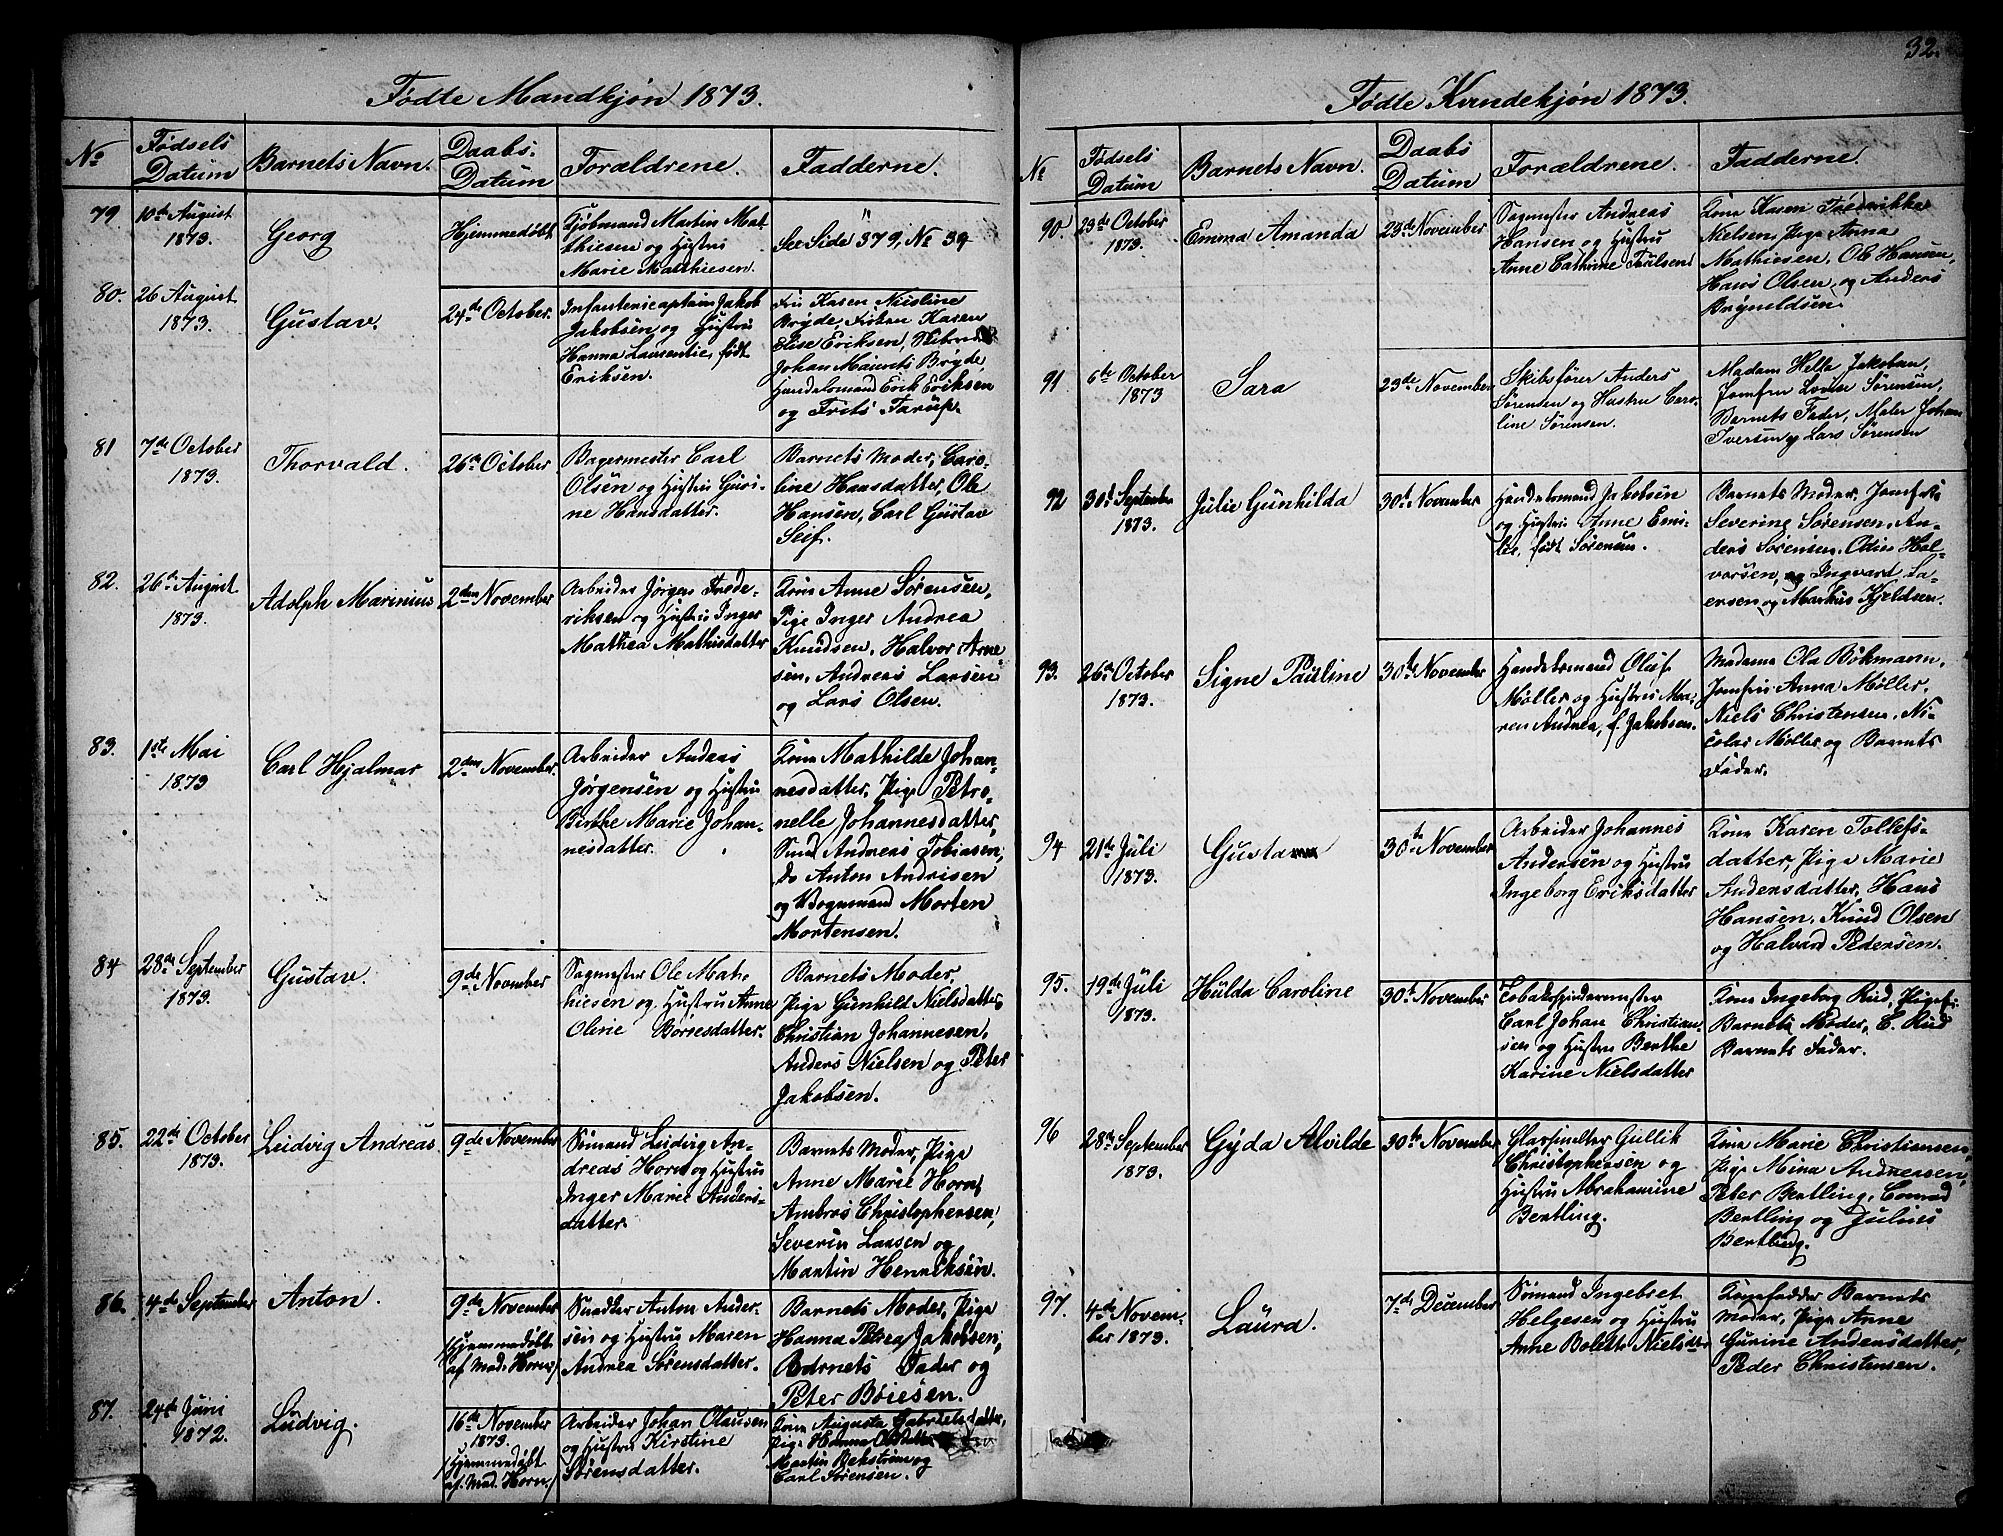 32.
Fødte Mandkjøn 1873.
No
Fødsels Datum
Barnets Navn.
Daabs. Datum
Forældrene.
Fadderne.
79
10de August
1873.
Georg
Hjemmedøbt
Kjøbmand Martin Mat-
thiesen og Hustru
Marie Matthiesen.
See Side 379, No 39
80.
26 August
1873.
Gustav.
24de October.
Infantericaptain Jakob
Jakobsen og Hustru
Hanna Laurentie, født
Eriksen.
Fru Karen Nicoline
Bryde, Frøken Karen
Elise Eriksen,
Johan Maurits Bryde,
Handelsmand Erik Eriksen
og Frits Tarup.
81
7de October
1873.
Thorvald.
26de October
Bagermester Carl
Olsen og Hustru Guri-
ne Hansdatter.
Barnets Moder, Caro-
line Hansdatter, Ole
Hansen, Carl Gustav
Seif.
82.
26de August
1873.
Adolph Marinius
2den November
Arbeider Jørgen Frede-
riksen og Hustru Inger
Mathea Mathisdatter
Kone Anne Sørensen,
Pige Inger Andrea
Knudsen, Halvor Arne-
sen, Andreas Larsen
og Lars Olsen.
83.
1ste Mai
1873
Carl Hjalmar
2den November.
Arbeider Andreas
Jørgensen og Hustru
Birthe Marie Johan-
nesdatter.
Kone Mathilde Johan-
nesdatter, Pige Petro-
nelle Johannesdatter,
Smed Andreas Tobiasen,
do Anton Andrisen
og Vognmand Morten
Mortensen.
84
28de September
1873.
Gustav.
9de November
Sagmester Ole Mat-
hiesen og Hustru Anne
Oline Børresdatter.
Barnets Moder
Pige Gunhild Nielsdatter
Christian Johannesen,
Anders Nielsen og Peter
Jakobsen.
85.
22de October
1873.
Ludvig Andreas.
9de November
Sømand Ludvig An-
dreas Horn og Hustru
Inger Marie Anders-
datter.
Barnets Moder, Pige
Anne Marie Horn,
Ambros Christophersen,
Severin Larsen og
Martin Henriksen.
86.
4de September
Anton.
9de November
/Hjemmedøbt
af Mad. Horn/
Snedker Anton Ander-
sen og Hustru Maren
Andrea Sørensdatter.
Barnets Moder, Pige
Hanna Petra Jakobsen,
Barnets Fader og
Peter Boiesen.
87.
24de Juni
1872.
Ludvig.
16de November
1873.
/Hjemmedøbt
af Mad. Horn/
Arbeider Johan Olausen
og Hustru Kirstine
Sørensdatter.
Kone Augusta Gabrielsdatter,
Pige Hanna Olsdatter
Martin Bekstrøm og
Carl Sørensen.
Fødte Kvindekjøn 1873.
No
Fødsels Datum
Barnets Navn.
Daabs Datum
Forældrene.
Fadderne.
90.
23de October
1873.
Emma Amanda
23de November
Sagmester Andreas
Hansen og Hustru
Anne Cathrine Poulsen
Kone Karen Frederikke
Nielsen, Pige Anna
Mathiesen, Ole Hansen,
Hans Olsen og Anders
Brynildsen.
91
6te October
1873
Sara
23de November
Skibsfører Anders
Sørensen og Hustru Caro-
line Sørensen.
Madam Helle Jakobsen,
Jomfru Lovise Sørensen,
Barnets Fader, Maler Johan
Iversen og Lars Sørensen
92
30te September
1873.
Julie Gunhilda
30te November
Handelsmand Jakobsen
og Hustru Anne Emi-
lie, født Sørensen.
Barnets Moder, Jomfru
Severine Sørensen, An-
ders Sørensen, Odin Hal-
vorsen, og Ingvard La-
ersen og Markus Kjeldsen.
93.
26de October
1873.
Signe Pauline
30te November
Handelsmand Oluf
Møller og Hustru Ma-
ren Andrea, f. Jakobsen.
Madame Ola Bøkmann,
Jomfru Anna Møller,
Niels Christensen, Ni-
colai Møller og Barnets
Fader.
94
21de Juli
1873.
Gusta
30te November
Arbeider Johannes
Andersen og Hustru
Ingeborg Eriksdatter
Kone Karen Tollefs-
datter, Pige Marie
Andersdatter, Hans
Hansen, Knud Olsen
og Halvard Pedersen.
95.
19de Juli
1873.
Hulda Caroline
30te November
Tobakspindermester
Carl Johan Christian-
sen og Hustru Berthe
Karine Nielsdatter
Kone Ingeborg Rud,
Barnets Moder, C. Rud
Barnets Fader.
96
28de September
1873.
Gyda Alvilde
30te November
Glasmelter Gullik
Christophersen og
Hustru Abrahamine
Bertling.
Kone Marie Christiansen,
Pige Mina Andresen,
Peter Bertling, Conrad
Bertling og Julius
Bertling.
97.
4de Novem-
ber 1873.
Laura.
7de December
Sømand Ingebret
Helgesen og Hustru
Anne Bolette Nielsdtter
Kone fadder Barnets
Moder, Pige Anne
Gurine Andersdatter,
Peder Christensen.